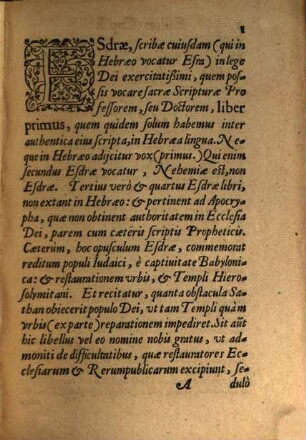 1
ESdræ, scribæ cuiusdam (qui in
Hebræo vocatur Esra) in lege
Dei exercitatißimi, quem pos-
sis vocare sacræ Scripturæ Pro
fessorem, seu Doctorem, liber
primus, quem quidem solum habemus inter
authentica eius scripta, in Hebræa lingua. Ne
que in Hebræo adijcitur vox (primus.) Qui enim
secundus Esdræ vocatur, Nehemiæ est, non
Esdræ. Tertius verò & quartus Esdræ libri,
non extant in Hebræo: & pertinent ad Apocry-
pha, quæ non obtinent authoritatem in Ecclesia
Dei, parem cum cæteris scriptis Propheticis.
Cæterùm, hoc opusculum Esdræ, commemorat
reditum populi Iudaici, è captiuitate Babyloni-
ca: & restaurationem vrbis, & Templi Hiero-
solymitani. Et recitatur, quanta obstacula Sa-
than obiecerit populo Dei, vt tam Templi quàm
vrbis (ex parte) reparationem impediret. Sit aũt
hic libellus vel eo nomine nobis gratus, vt ad-
moniti de difficultatibus, quæ restauratores Ec-
clesiarum & Rerumpublicarum excipiunt, se-
A dulò